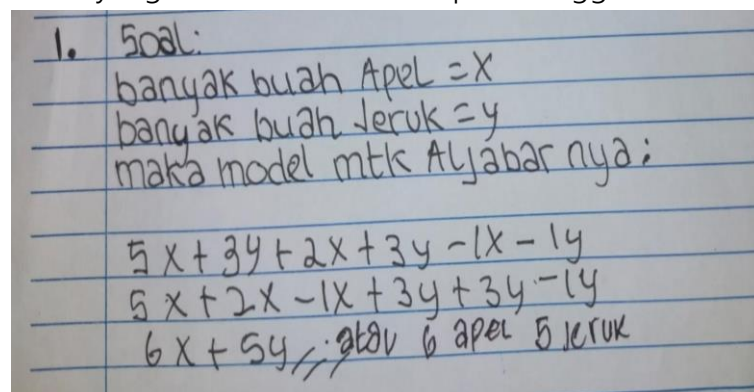 1. Soal:
banyak buah Apel = x
banyak buah Jeruk = y
maka model mtk Aljabar nya:
5x + 3y + 2x + 3y - 1x - 1y
5x + 2x - 1x + 3y + 3y - 1y
6x + 5y // atau 6 apel 5 jeruk